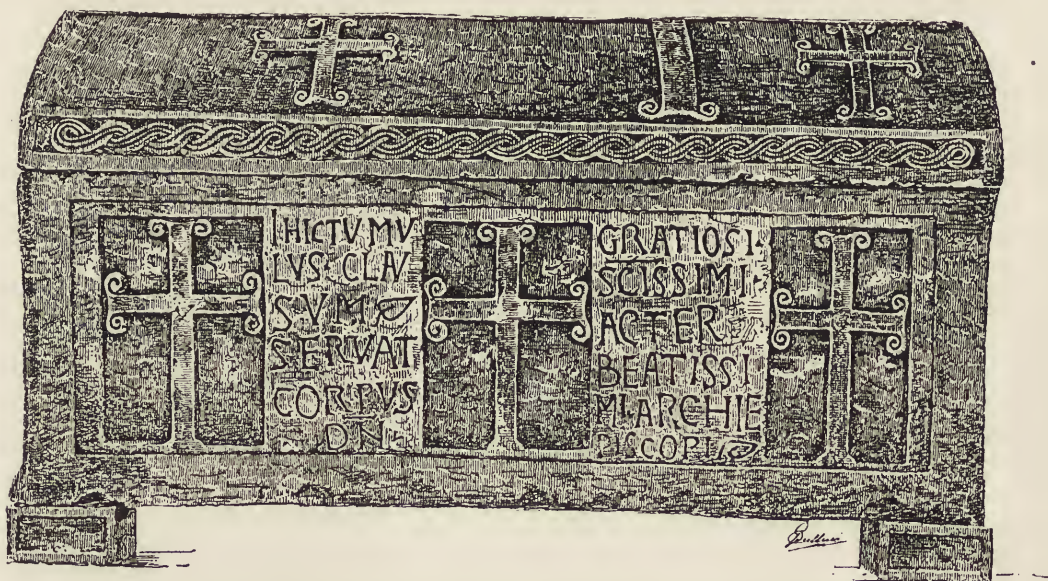 IHICTVMV
LVS CLAV
SVM
SERVAT
CORPVS
DN
GRATIOSI
SCISSIMI
ACTER
BEATISSI
MI ARCHIE
PISCOPI